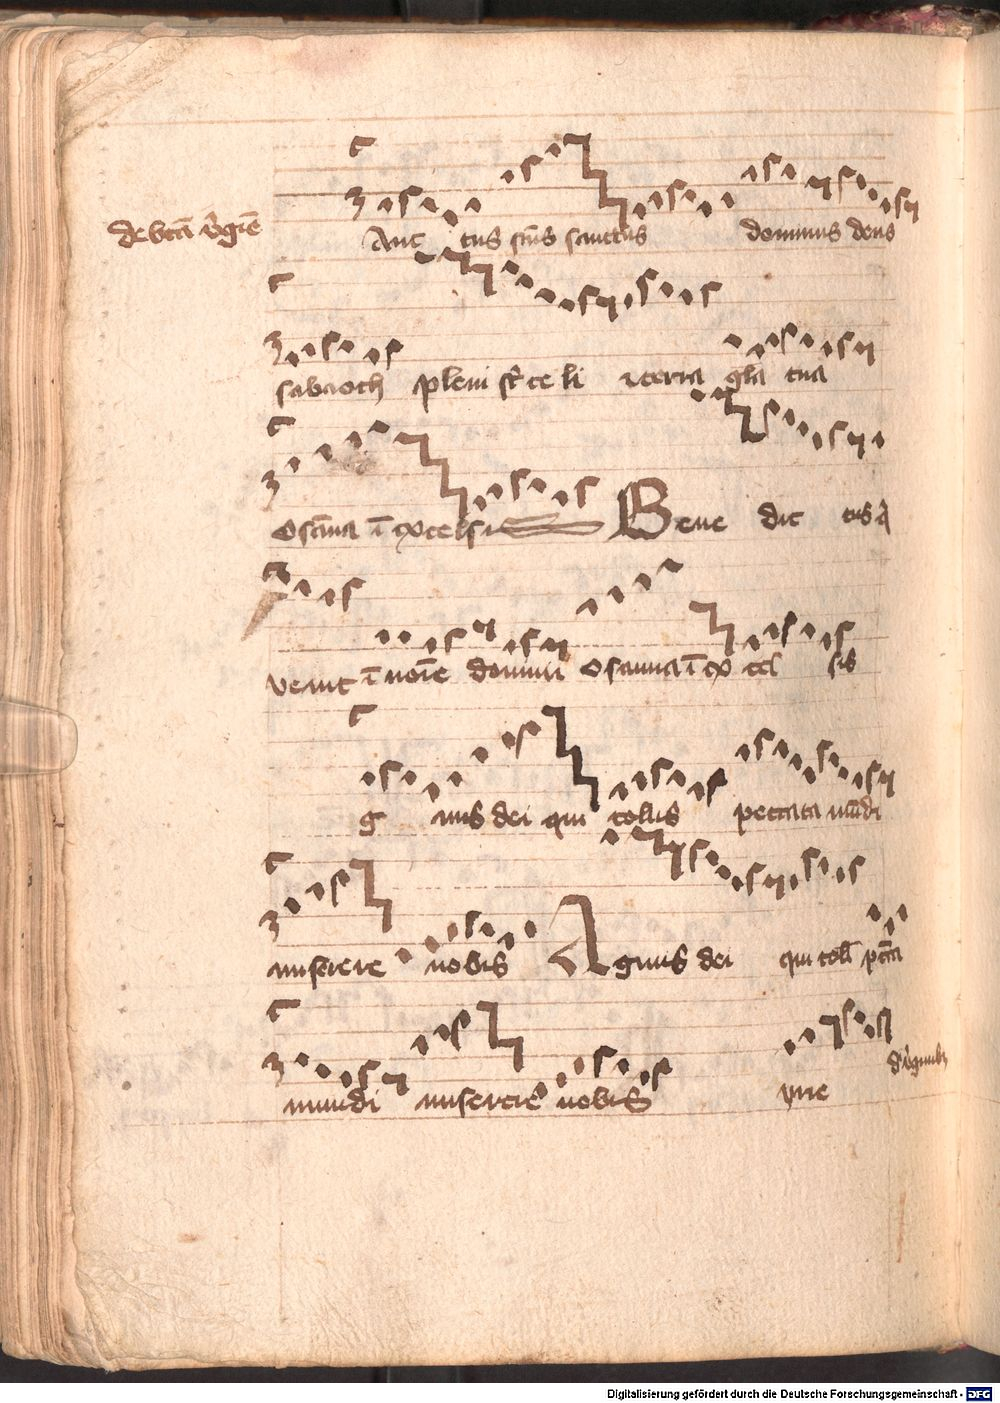 de btā v̄gīe
Anc tus sc̄us sanctus dominus deus
sabaoth pleni sūt celi et terra gl̄a tua
Osāna ī excelsis Bene dic tus q̄
venit ī noīe domini Osanna ī ex cel sis
g nus dei qui tollis peccata mūdi
miserere nobis Agnus dei qui toll̄ pc̄ta
mundi miserere nobis
Digitalisierung gefördert durch die Deutsche Forschungsgemeinschaft - DFG